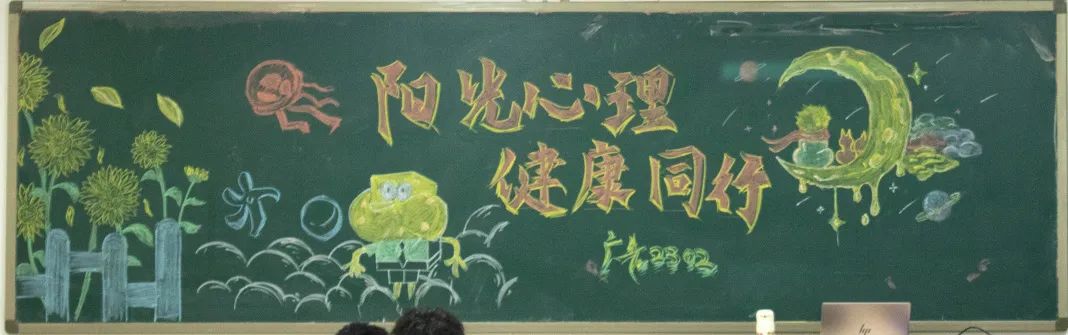 阳光心理
健康同行
广告2302
hp